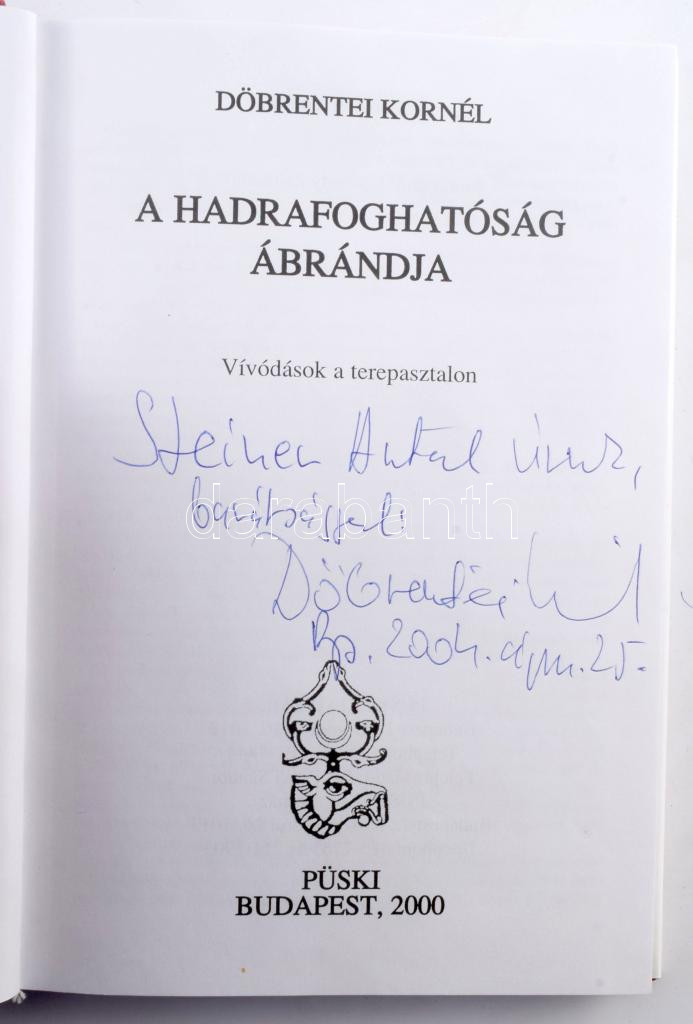 DÖBRENTEI KORNÉL
A HADRAFOGHATÓSÁG
ÁBRÁNDJA
Vívódások a terepasztalon
Steiner Antal úrnak,
barátsággal:
darabanth
Döbrentei Kornél
Bp. 2004. 25.
PÜSKI
BUDAPEST, 2000